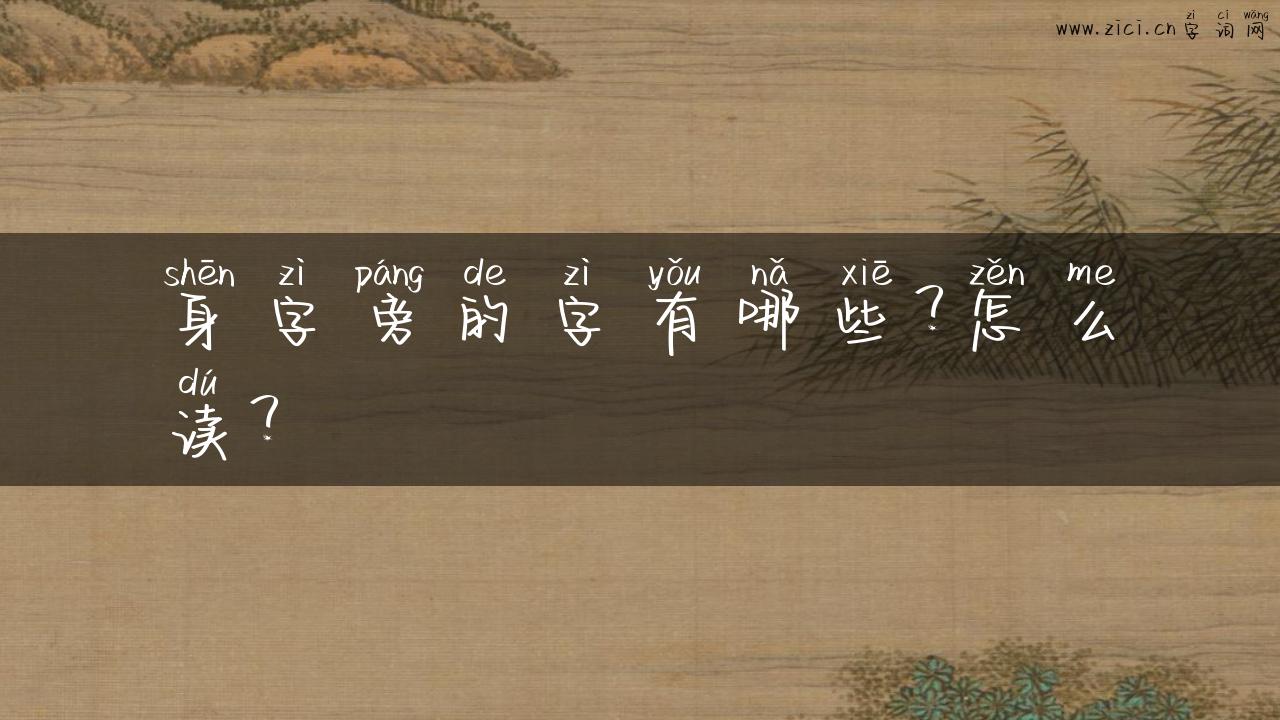 zì cí wǎng
www.zici.cn字词网
shēn zì páng de zì yǒu nǎ xiē zěn me
身字旁的字有哪些？怎么
dú
读？